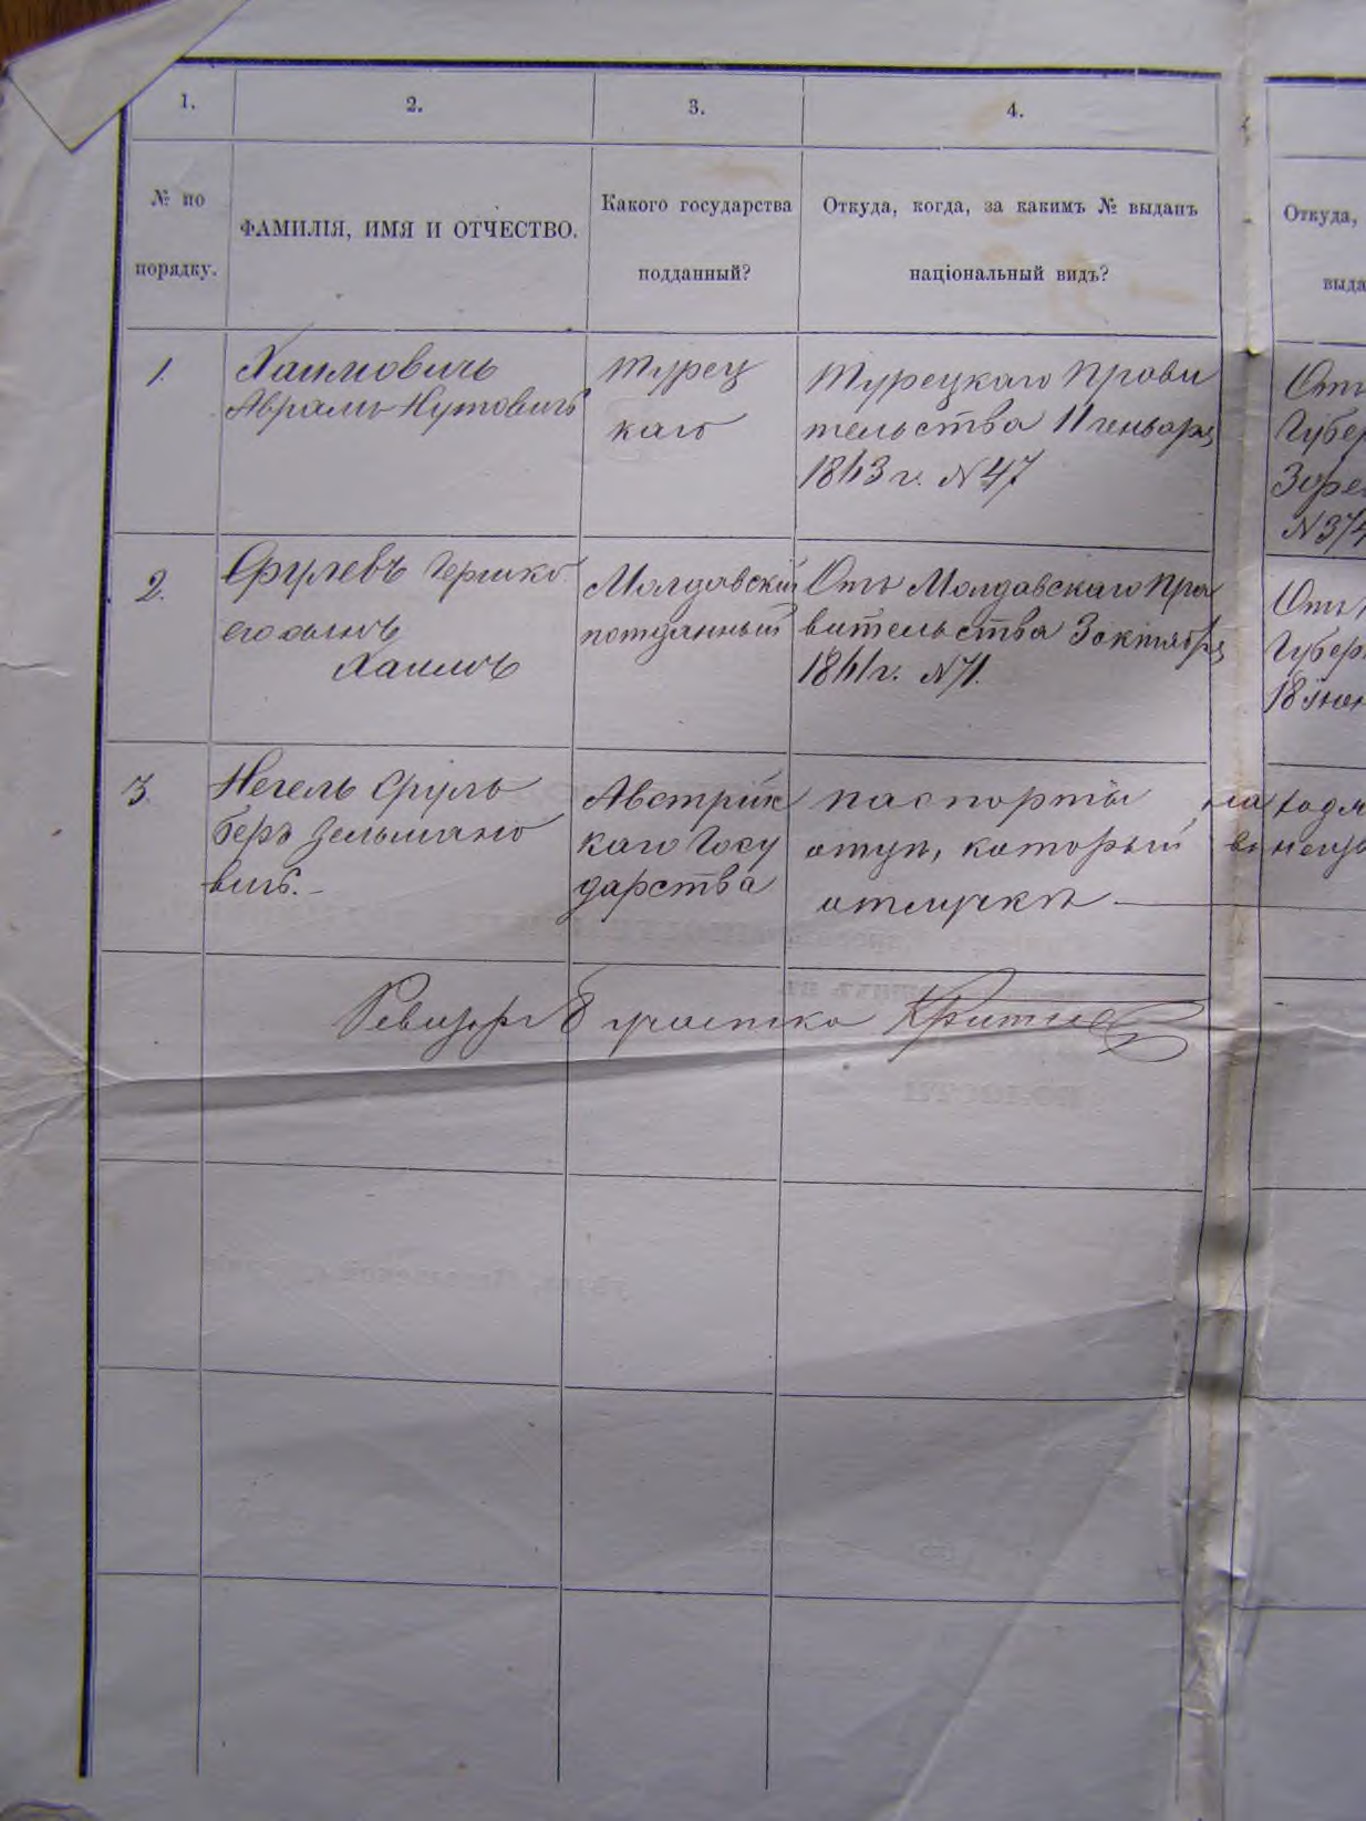 1.
2.
3.
4.
№ по
порядку.
ФАМИЛІЯ, ИМЯ И ОТЧЕСТВО.
Какого государства
подданный?
Откуда, когда, за какимъ № выданъ
національный видъ?
Откуда,
выда
1.
Хаимовичъ
Аврамъ Нутовичъ
Турец
каго
Турецкаго Прови
тельства 11 генваря
1863 г. N 47
Отъ
Губер
N 374
2.
Срулевъ Гершко
его сынъ
Хаимъ
Молдавскій
потданный
Отъ Молдавскаго Пра
вительства 3 октября
1861 г. N 71.
Отъ
Губер
18 Іюн
3.
Негель Сруль
беръ Зельмано
вичъ.
Австрій
каго Госу
дарства
паспорты на ходя
который въ неиз
отлучкѣ
Ревизоръ 8 участка